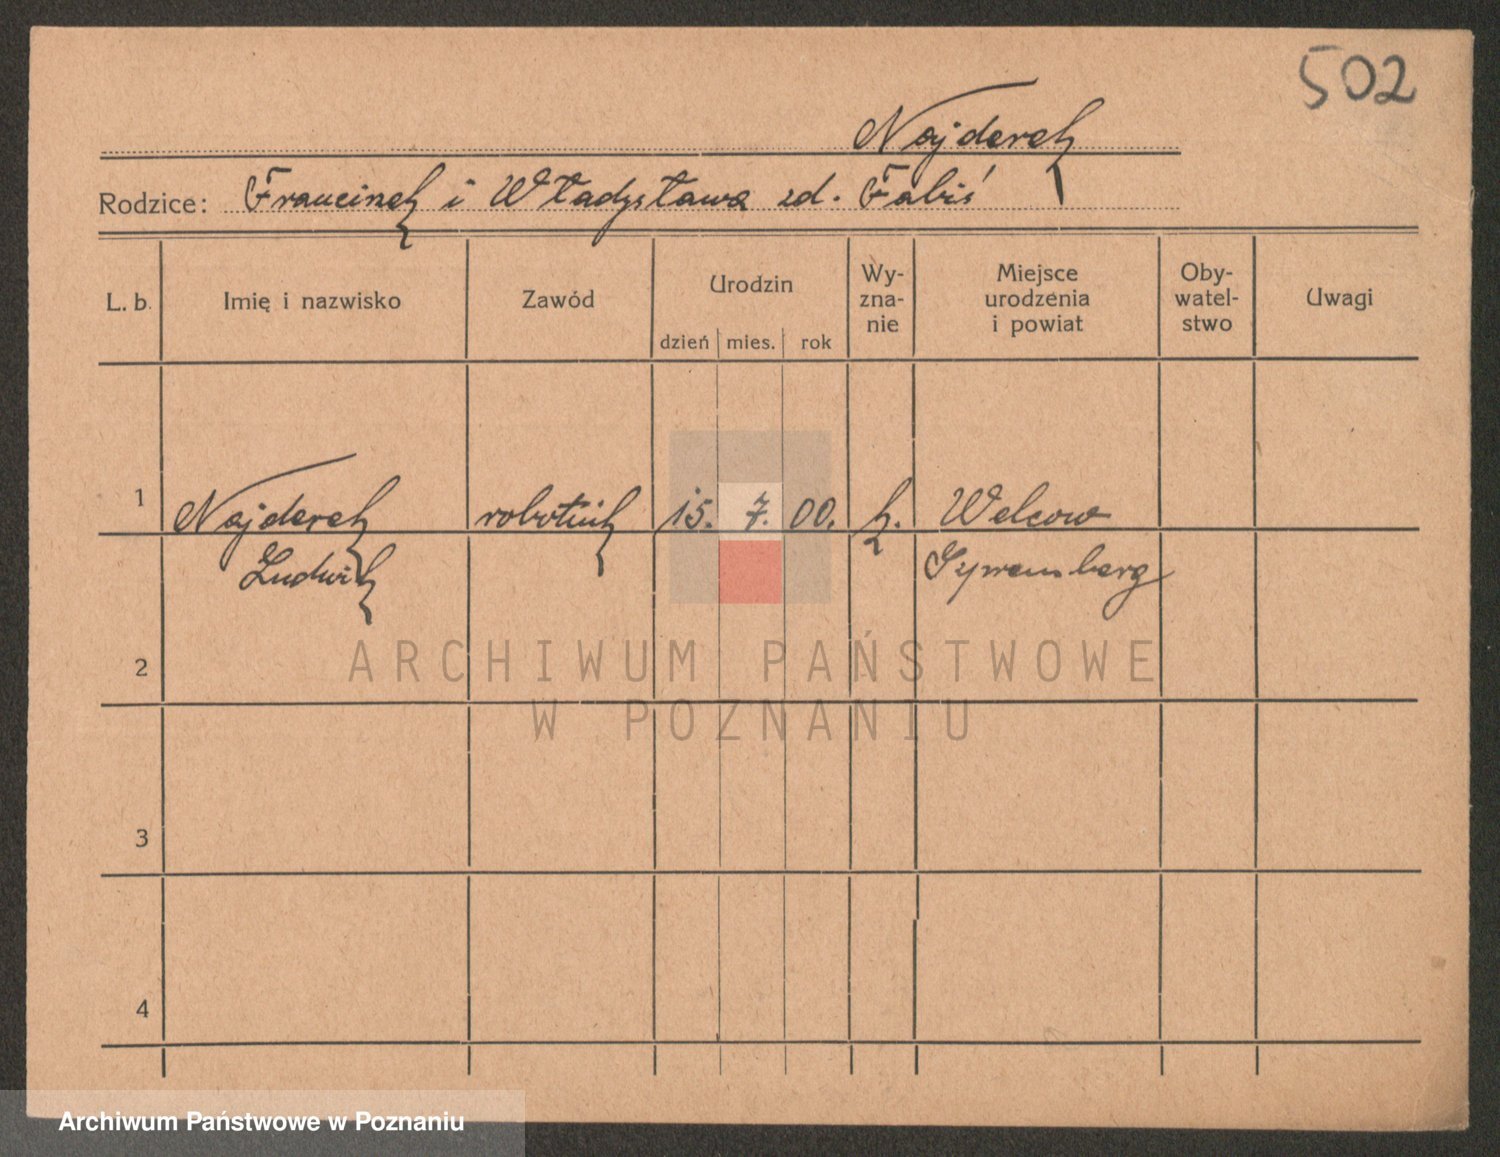 502
Najderek
Rodzice: Franciszek i Władysława zd. Fabiś
L. b. Imię i nazwisko Zawód Urodzin dzień mies. rok Wy-zna-nie Miejsce urodzenia i powiat Oby-watel-stwo Uwagi
1 Najderek robotnik 15. 7. 00. k. Welcow
Ludwik
2
3
4
ARCHIWUM PAŃSTWOWE
W POZNANIU
Archiwum Państwowe w Poznaniu